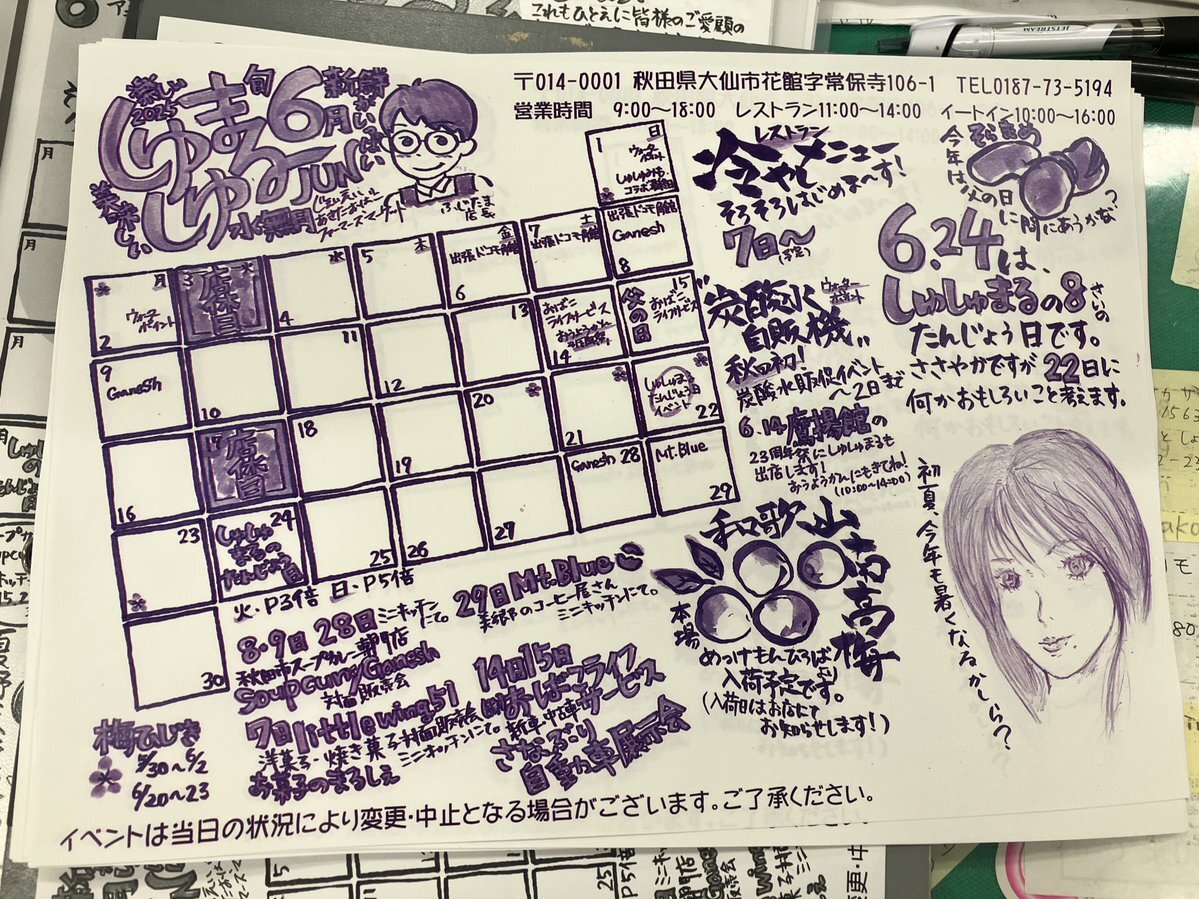 これもひとえに皆様のご愛顧の
JETSTREAM
〒014-0001 秋田県大仙市花館字常保寺106-1 TEL0187-73-5194
営業時間 9:00～18:00 レストラン11:00～14:00 イートイン10:00～16:00
楽しい
2025
旬
新鮮がいっぱい
しゅしゅまる
6月
JUN
水無月
美味しい
ファーマーズマーケット
ふじたま
店長
日
1
ウォーターポイント
しゅしゅまる
月
火
水
木
金
土
2
ウォーター
ポイント
3
店休日
4
5
出張ドコモ角館
6
7
出張ドコモ角館
出張ドコモ角館
Ganesh
8
9
Ganesh
10
11
12
13
おばこ
ライフサービス
14
15
父の日
おばこ
ライフサービス
16
17
店休日
18
19
20
21
しゅしゅまる
たんじょう日
イベント
22
23
24
しゅしゅ
まるの
たんじょう
日
25
26
27
Ganesh 28
Mt.Blue
29
30
火・P3倍 日・P5倍
レストラン
冷やしメニュー
そろそろはじめま～す!
7日～
(予定)
炭酸水
自販機!!
ウォーター
ポイント
秋田初!
炭酸水販促イベント
～2日まで
6.14鷹揚館の
23周年祭にしゅしゅまるも
出店します!
おうようかんにもきてね!
(10:00～14:00)
そらまめ
今年は父の日
に間にあうかな?
6.24
は、
しゅしゅまるの8さいの
たんじょう日です。
ささやかですが22日に
何かおもしろいこと考えます。
和歌山南高梅
本場
めっけもんひろば
入荷予定です。
(入荷日はお店にて
お知らせします!)
初夏、今年も暑くなるかしら?
8・9日 28日 ミニキッチンにて。
秋田市スープカレー専門店
Soup Curry Ganesh
対面販売会
29日 Mt.Blue
美郷のコーヒー屋さん
ミニキッチンにて。
7日 little wing51
洋菓子・焼き菓子対面販売会
ミニキッチンにて。
お菓子のまるしぇ
14日15日
おばこライフサービス
新車・中古車
さなぶり
自動車展示会
梅ひじき
5/30～6/2
6/20～23
イベントは当日の状況により変更・中止となる場合がございます。ご了承ください。